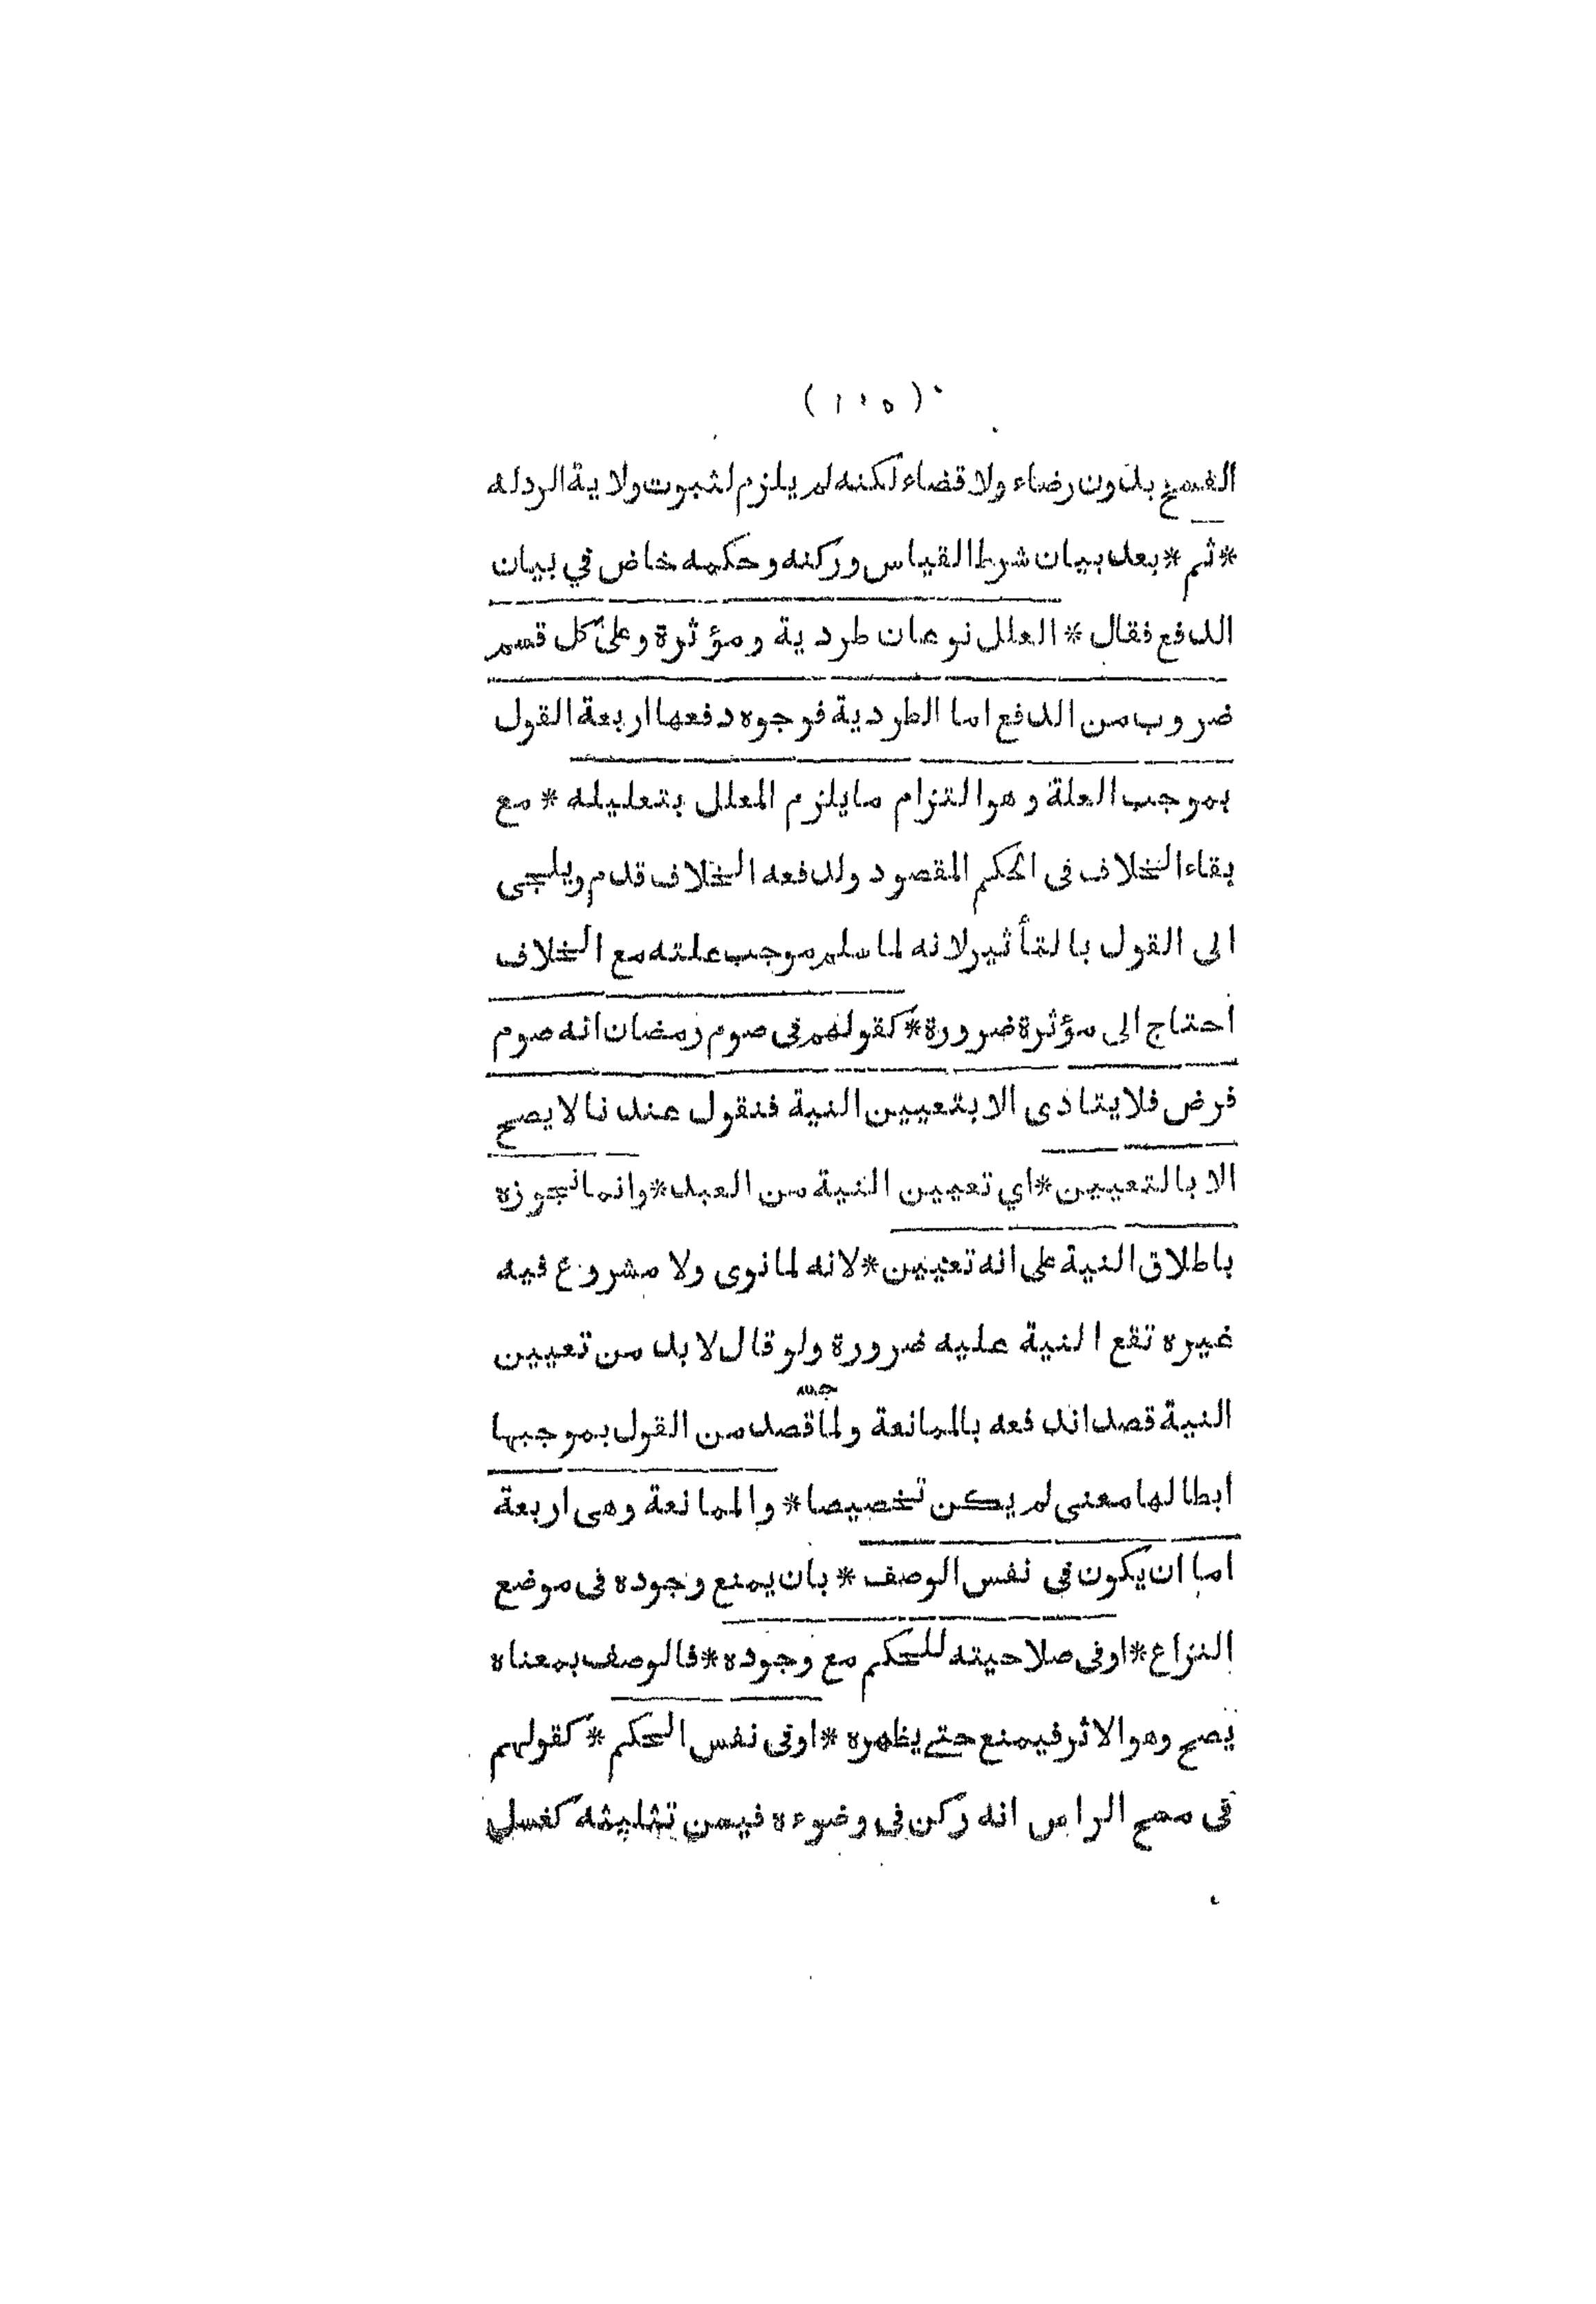 (١٠٥)
الفسخ بدون رضاء ولا قضاء لكنه لم يلزم لثبوت ولاية الرد له
*ثم* بعد بيان شرط القياس وركنه وحكمه خاض في بيان
الدفع فقال * العلل نوعان طردية ومؤثرة وعلى كل قسم
ضروب من الدفع اما الطردية فوجوه دفعها اربعة القول
بموجب العلة وهو التزام ما يلزم المعلل بتعليله * مع
بقاء الخلاف فى الحكم المقصود ولدفعه الخلاف قدم ويلجى
الى القول بالتأثير لانه لما سلم موجب علته مع الخلاف
احتاج الى مؤثرة ضرورة* كقولهم فى صوم رمضان انه صوم
فرض فلا يتادى الا بتعيين النية فنقول عندنا لا يصح
الا بالتعيين* اي تعيين النية من العبد* وانما نجوزه
باطلاق النية على انه تعيين* لانه لما نوى ولا مشروع فيه
غيره تقع النية عليه ضرورة ولو قال لابد من تعيين
النية قصدا ندفعه بالممانعة ولما قصد من القول بموجبها
ابطالها معنى لم يكن تخصيصا* والممانعة وهى اربعة
اما ان يكون فى نفس الوصف * بان يمنع وجوده فى موضع
النزاع* اوفى صلاحيته للحكم مع وجوده* فالوصف بمعناه
يصح وهو الاثر فيمنع حتى يظهره * اوفى نفس الحكم * كقولهم
فى مسح الراس انه ركن فى وضوءه فيسن تثليثه كغسل